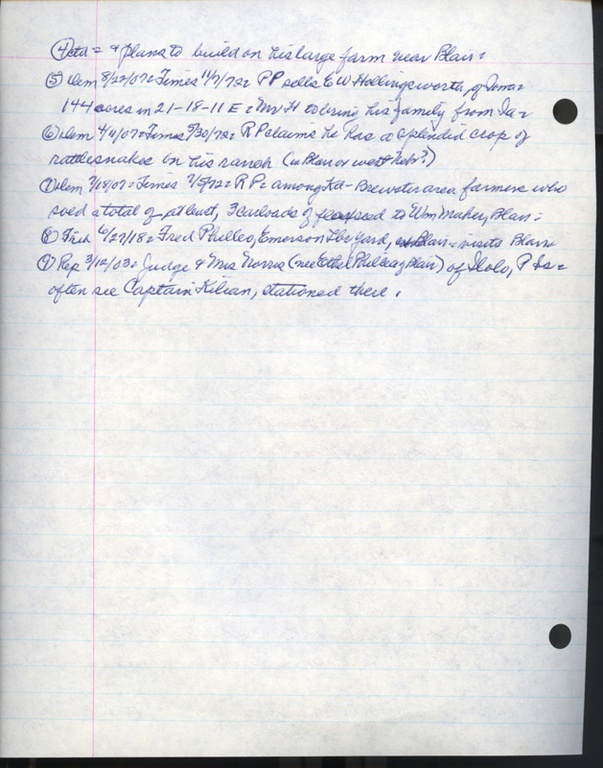 ④ctd = & plans to build on his large farm near Blair =
⑤ Dem 8/22/07 = Times 11/7/72 = PP sells E W Hollingsworth, of Iowa =
144 acres in 21-18-11 E = Mr H to bring his family from Ia =
⑥ Dem 4/4/07 = Times 5/30/72 = R P claims he has a splendid crop of
rattlesnakes on his ranch (in Blair or west Nebr?)
⑦ Dem 7/18/07 = Times 7/5/72 = R P = among Brewster area farmers who
sold a total of at least, 3 carloads of flaxseed to Wm Maher, Blair =
⑧ 6/27/18 = Fred Philleo, Emerson Lbr yard, visits Blair
⑨ Rep 3/12/03 = Judge & Mrs Norris (nee Ethel Philleo, Blair) of Iloilo, P Is =
often see Captain Kilian, stationed there.